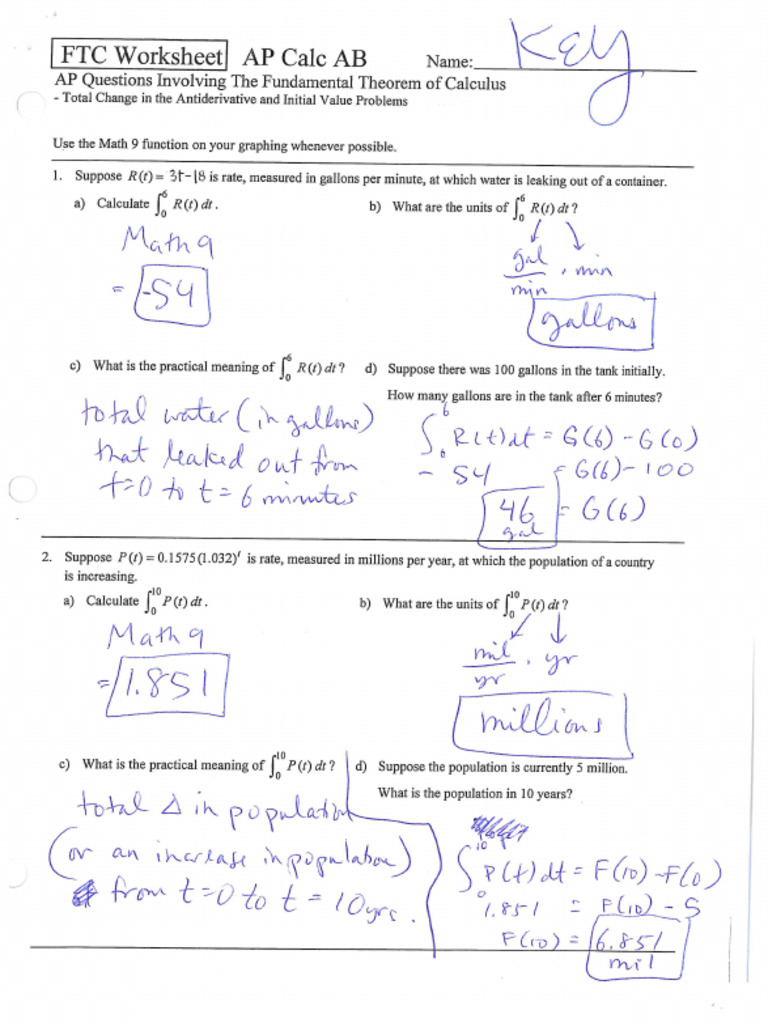 FTC Worksheet AP Calc AB Name: Key
AP Questions Involving The Fundamental Theorem of Calculus
- Total Change in the Antiderivative and Initial Value Problems
Use the Math 9 function on your graphing whenever possible.
1. Suppose R(t) = 3t-18 is rate, measured in gallons per minute, at which water is leaking out of a container.
a) Calculate ∫₀⁶ R(t) dt.
Math 9
= -54
b) What are the units of ∫₀⁶ R(t) dt?
gal/min · min
gallons
c) What is the practical meaning of ∫₀⁶ R(t) dt?
total water (in gallons)
that leaked out from
t=0 to t=6 minutes
d) Suppose there was 100 gallons in the tank initially.
How many gallons are in the tank after 6 minutes?
∫₀⁶ R(t)dt = G(6) - G(0)
- 54 = G(6) - 100
46 gal = G(6)
2. Suppose P(t) = 0.1575(1.032)ᵗ is rate, measured in millions per year, at which the population of a country
is increasing.
a) Calculate ∫₀¹⁰ P(t) dt.
Math 9
= 1.851
b) What are the units of ∫₀¹⁰ P(t) dt?
mil/yr · yr
millions
c) What is the practical meaning of ∫₀¹⁰ P(t) dt?
total Δ in population
(or an increase in population)
from t=0 to t=10yrs.
d) Suppose the population is currently 5 million.
What is the population in 10 years?
∫₀¹⁰ P(t)dt = F(10) - F(0)
1.851 = F(10) - 5
F(10) = 6.851
mil